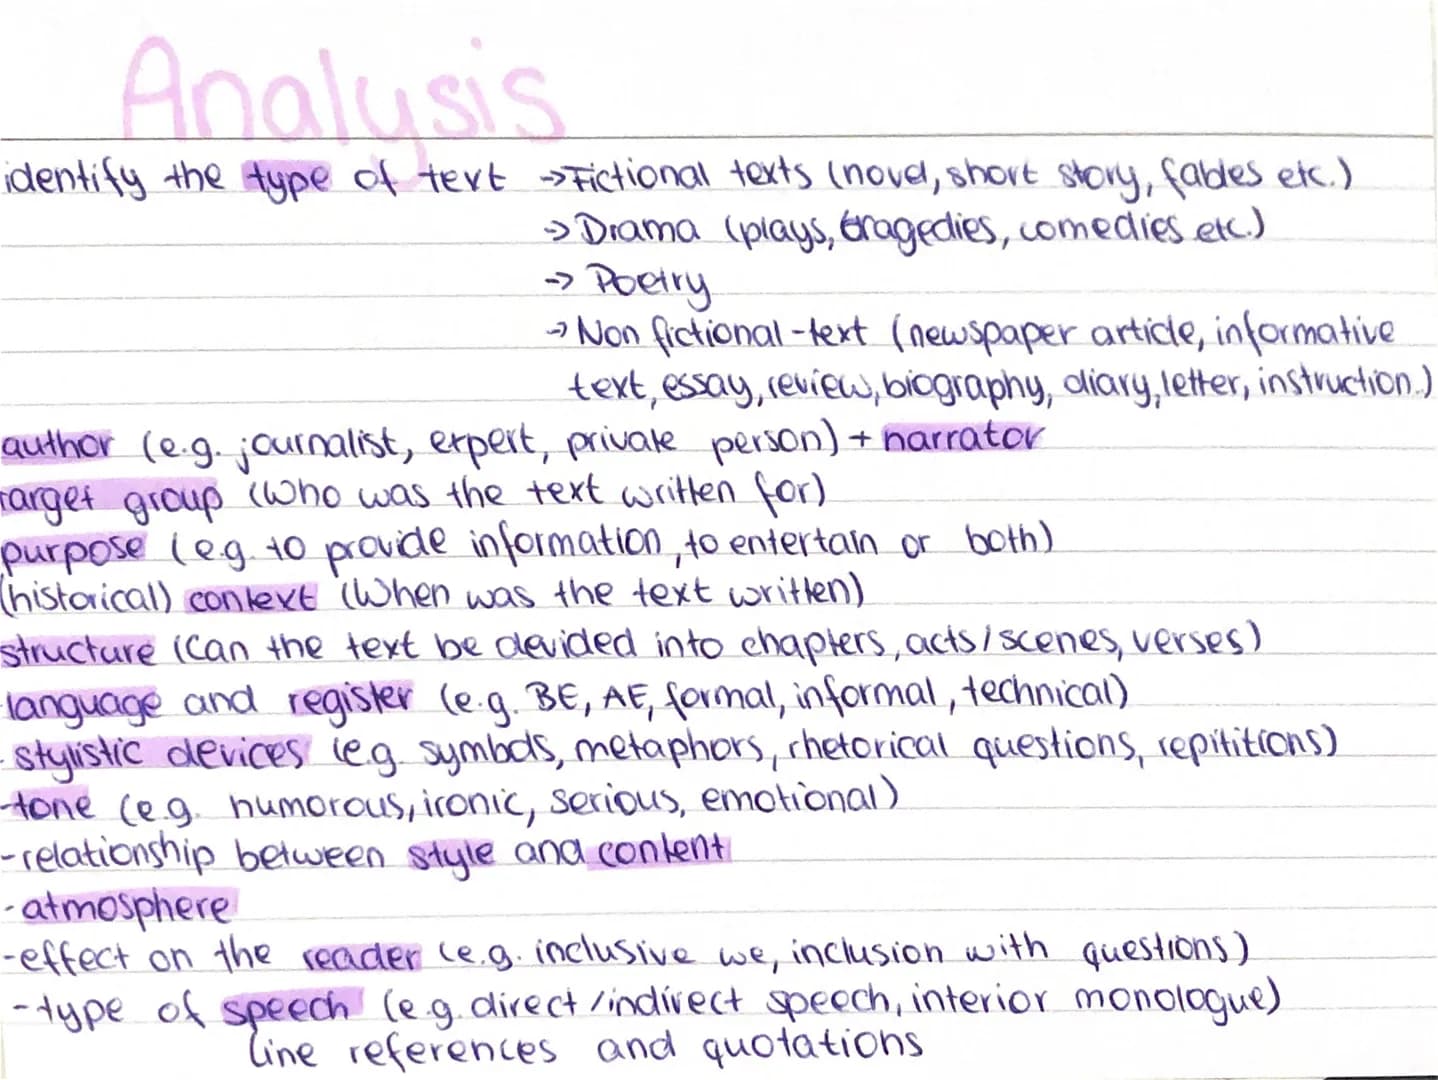 Analysis
identify the type of text →Fictional texts (novel, short story, fables etc.)
→ Drama (plays, tragedies, comedies etc.)
→ Poetry
→ Non fictional-text (newspaper article, informative
text, essay, review, biography, diary, letter, instruction.)
author (e.g. journalist, expert, private person) + narrator
target group (Who was the text written for)
purpose (e.g. to provide information, to entertain or both)
(historical) context (When was the text written)
structure (Can the text be devided into chapters, acts/scenes, verses)
language and register (e.g. BE, AE, formal, informal, technical)
- stylistic devices (e.g symbols, metaphors, rhetorical questions, repititions)
-tone (e.g. humorous, ironic, serious, emotional)
-relationship between style and content
-atmosphere
-effect on the reader (e.g. inclusive we, inclusion with questions)
-type of speech (e.g. direct/indirect speech, interior monologue)
line references and quotations